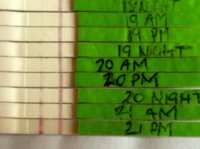 18 NIGHT
19 AM
19 PM
19 NIGHT
20 AM
20 PM
20 NIGHT
21 AM
21 PM